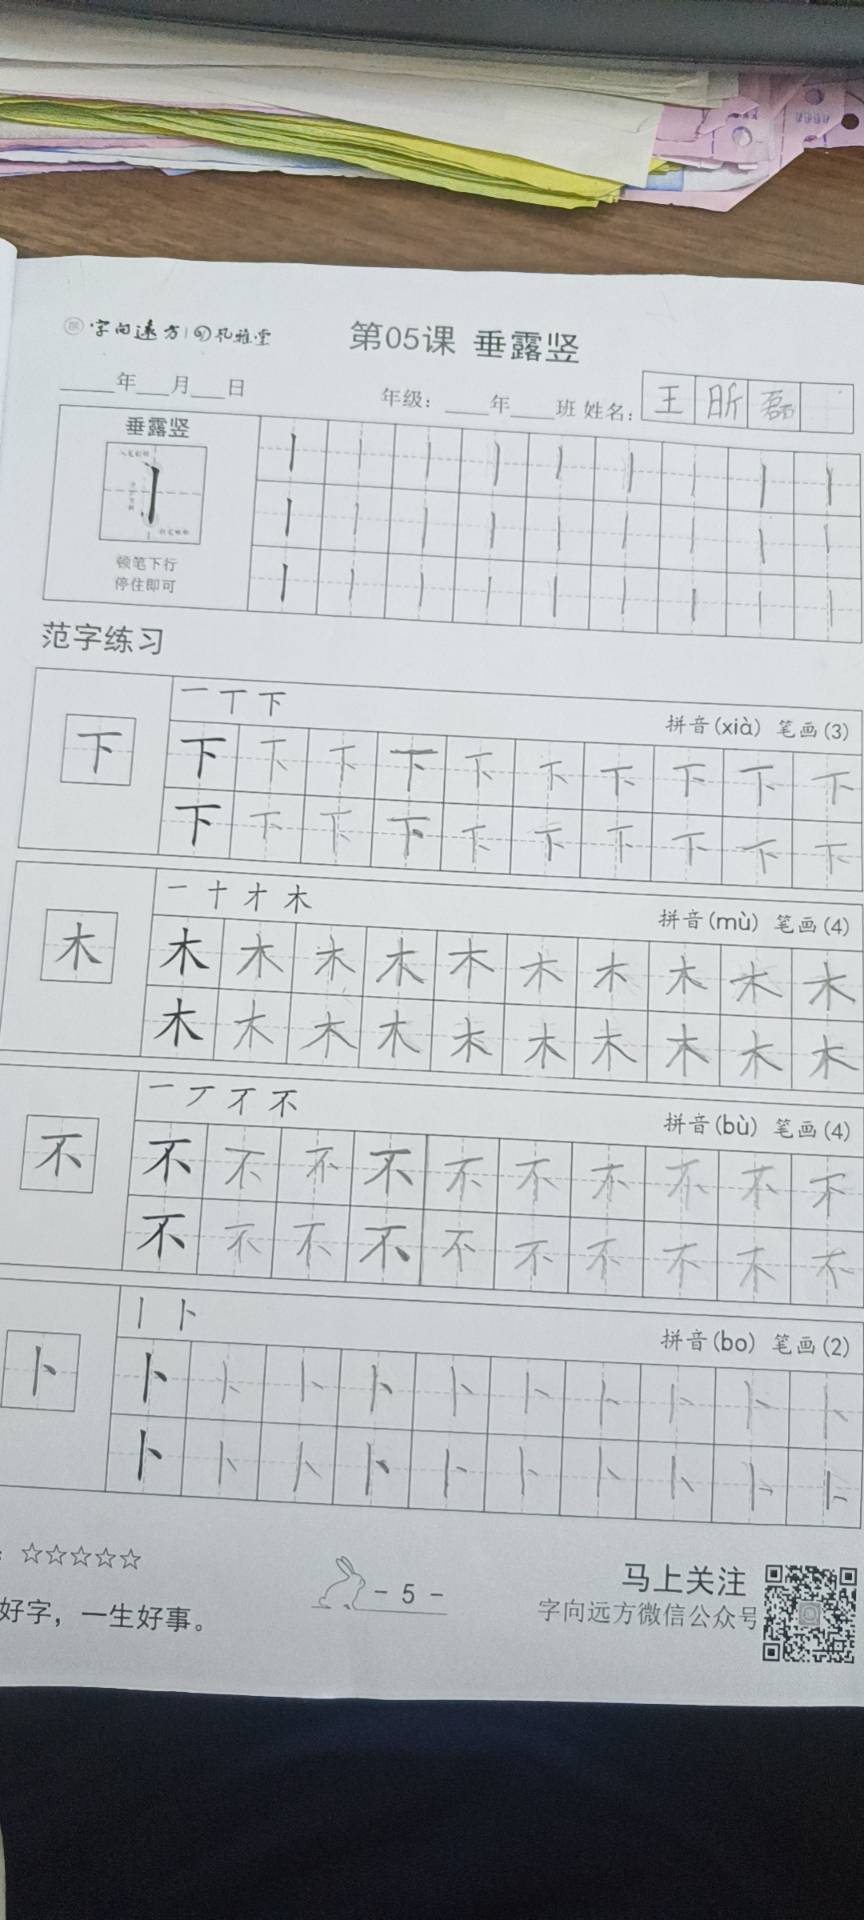 字向远方 凡雅堂
第05课 垂露竖
____年___月___日 年级：____年____班 姓名： 王 昕 磊
垂露竖
顿笔下行
停住即可
范字练习
一 丅 下
拼音(xià) 笔画(3)
下 下 下 下 下 下 下 下 下 下 下
下 下 下 下 下 下 下 下 下 下
一 十 才 木
拼音(mù) 笔画(4)
木 木 木 木 木 木 木 木 木 木 木
木 木 木 木 木 木 木 木 木 木
一 丆 不
拼音(bù) 笔画(4)
不 不 不 不 不 不 不 不 不 不 不
不 不 不 不 不 不 不 不 不 不
丨 卜
拼音(bo) 笔画(2)
卜 卜 卜 卜 卜 卜 卜 卜 卜 卜 卜
卜 卜 卜 卜 卜 卜 卜 卜 卜 卜
: ☆☆☆☆☆
好字，一生好事。
- 5 -
马上关注
字向远方微信公众号